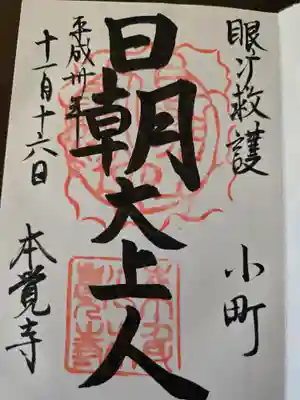 眼病救護
小町
日朝大上人
平成卅年
十一月十六日
本覚寺